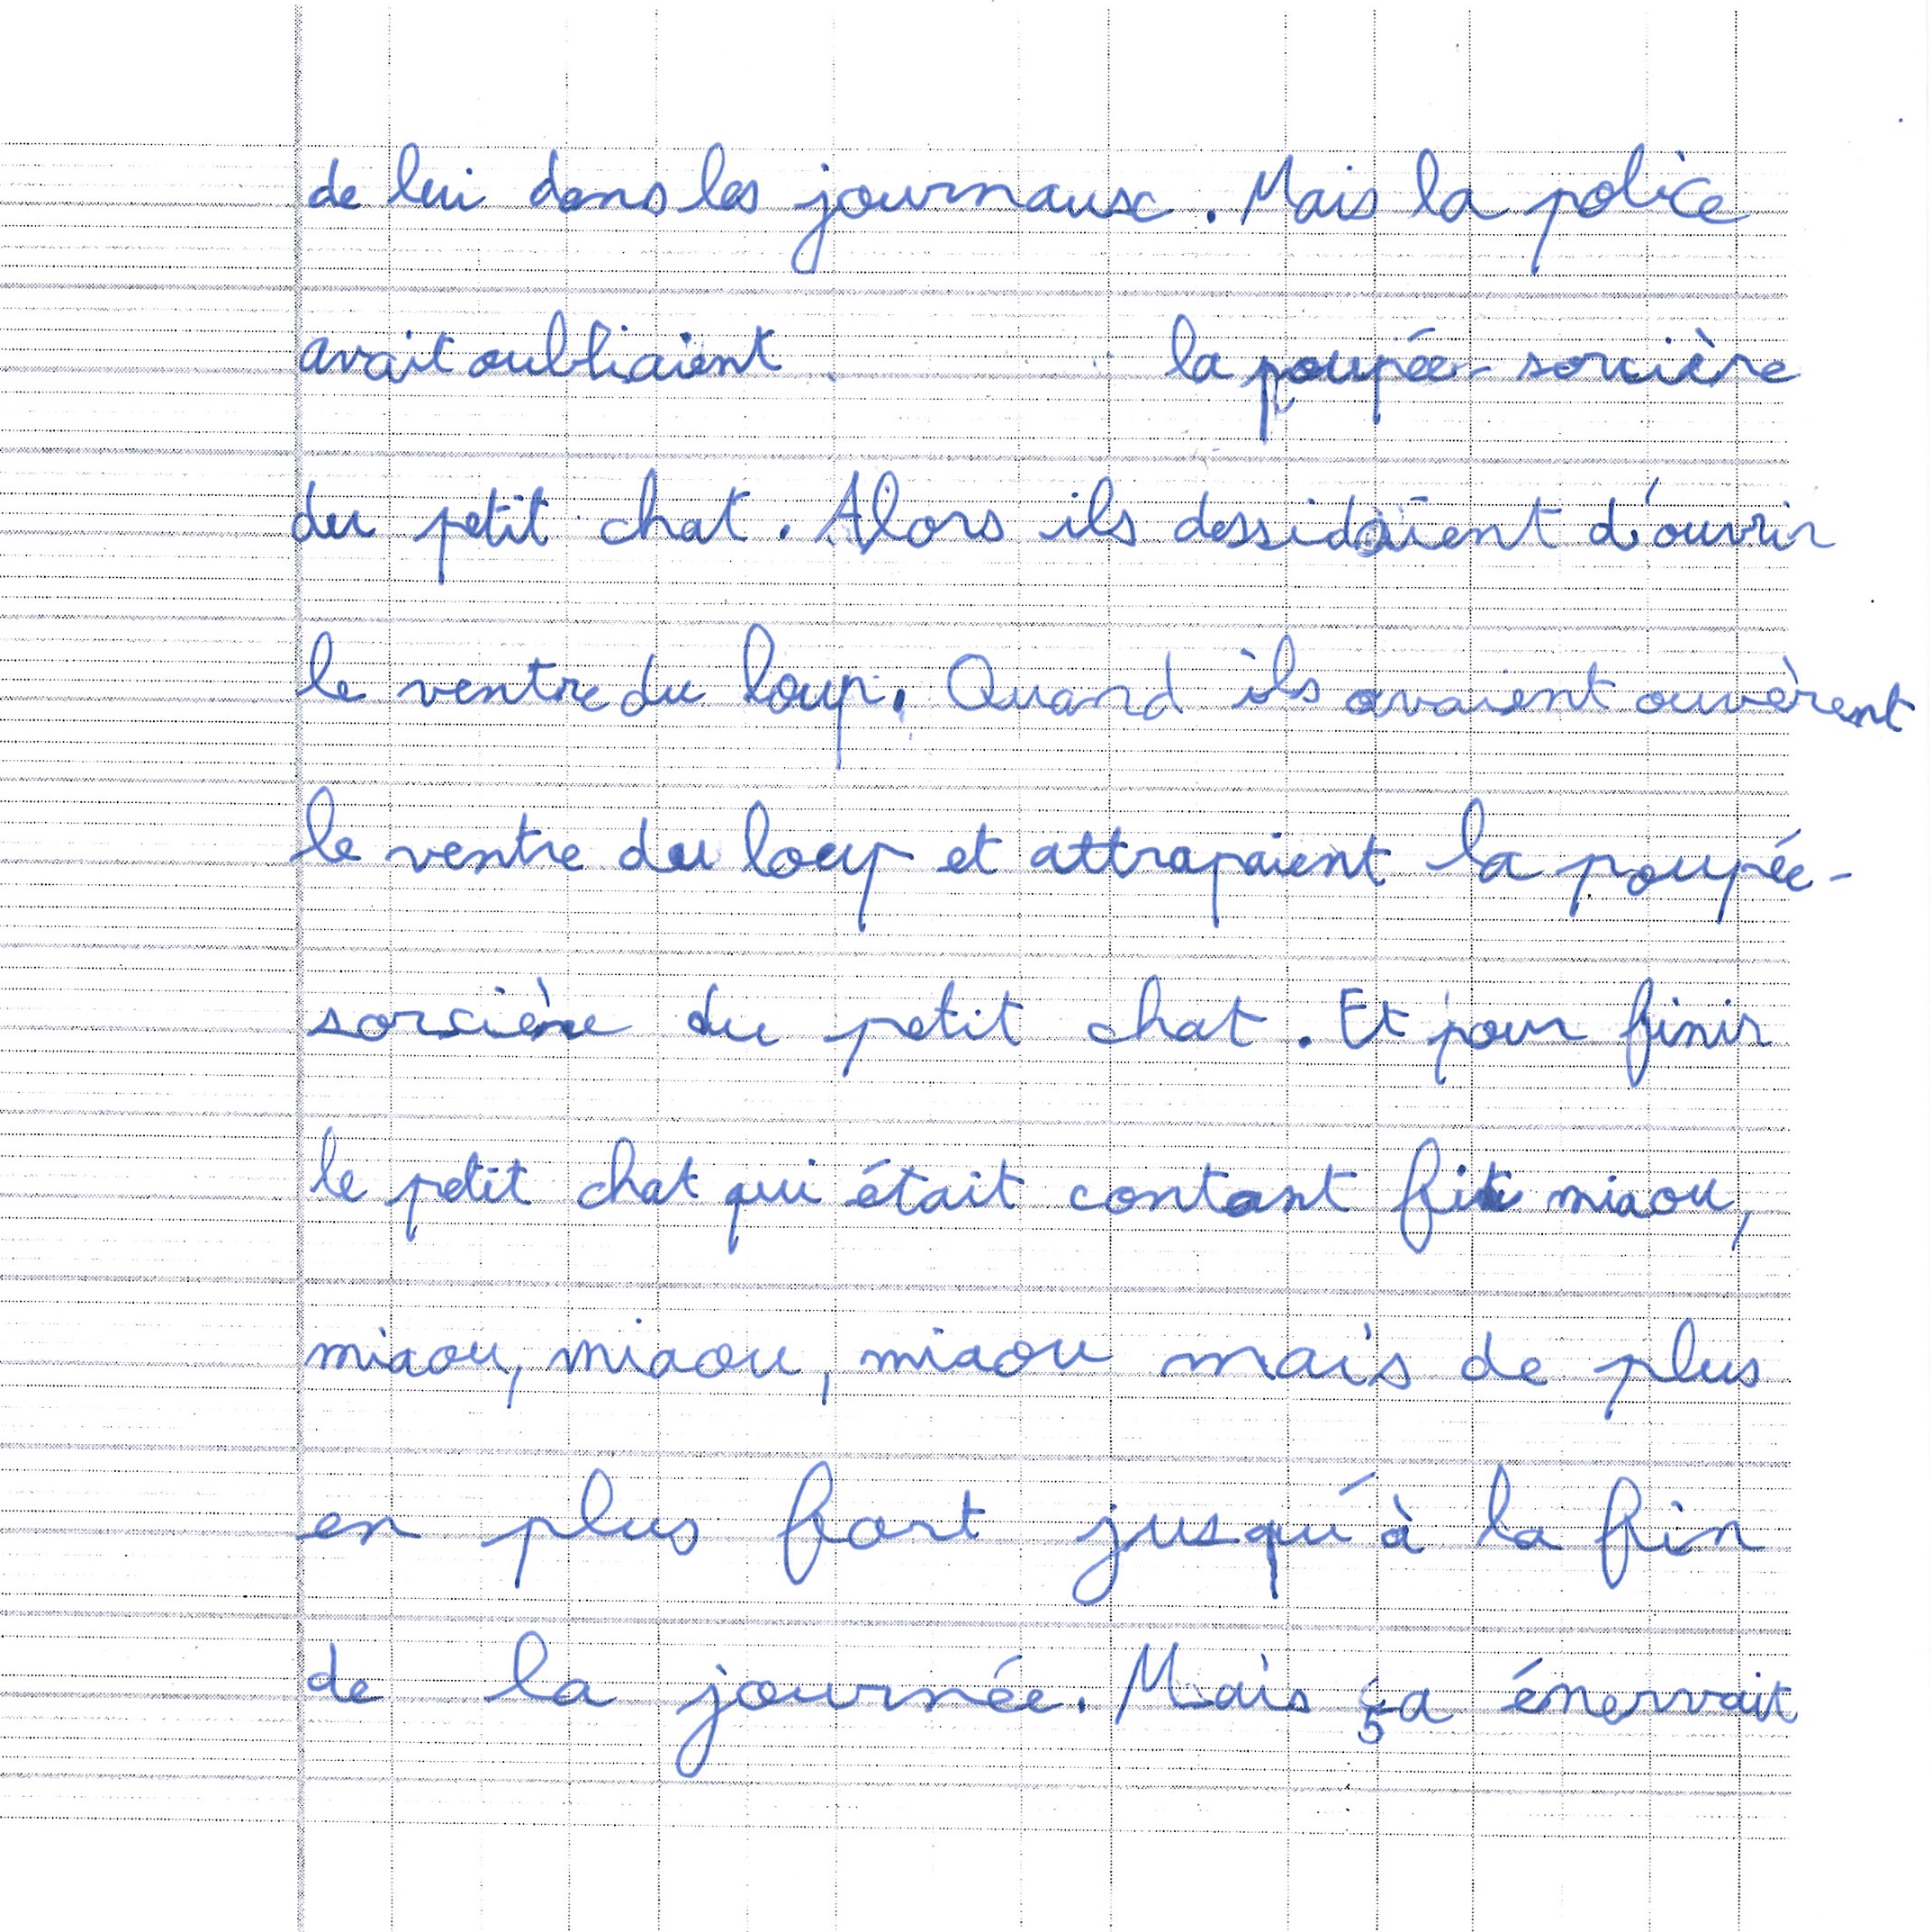 de lui dans les journaux. Mais la police
avait oubliaient la poupée-sorcière
du petit chat. Alors ils dessidaient d'ouvrir
le ventre du loup. Quand ils avaient ouvèrent
le ventre du loup et attrapaient la poupée-
sorcière du petit chat. Et pour finir
le petit chat qui était contant fit miaou,
miaou, miaou, miaou mais de plus
en plus fort jusqu'à la fin
de la journée. Mais ça énervait